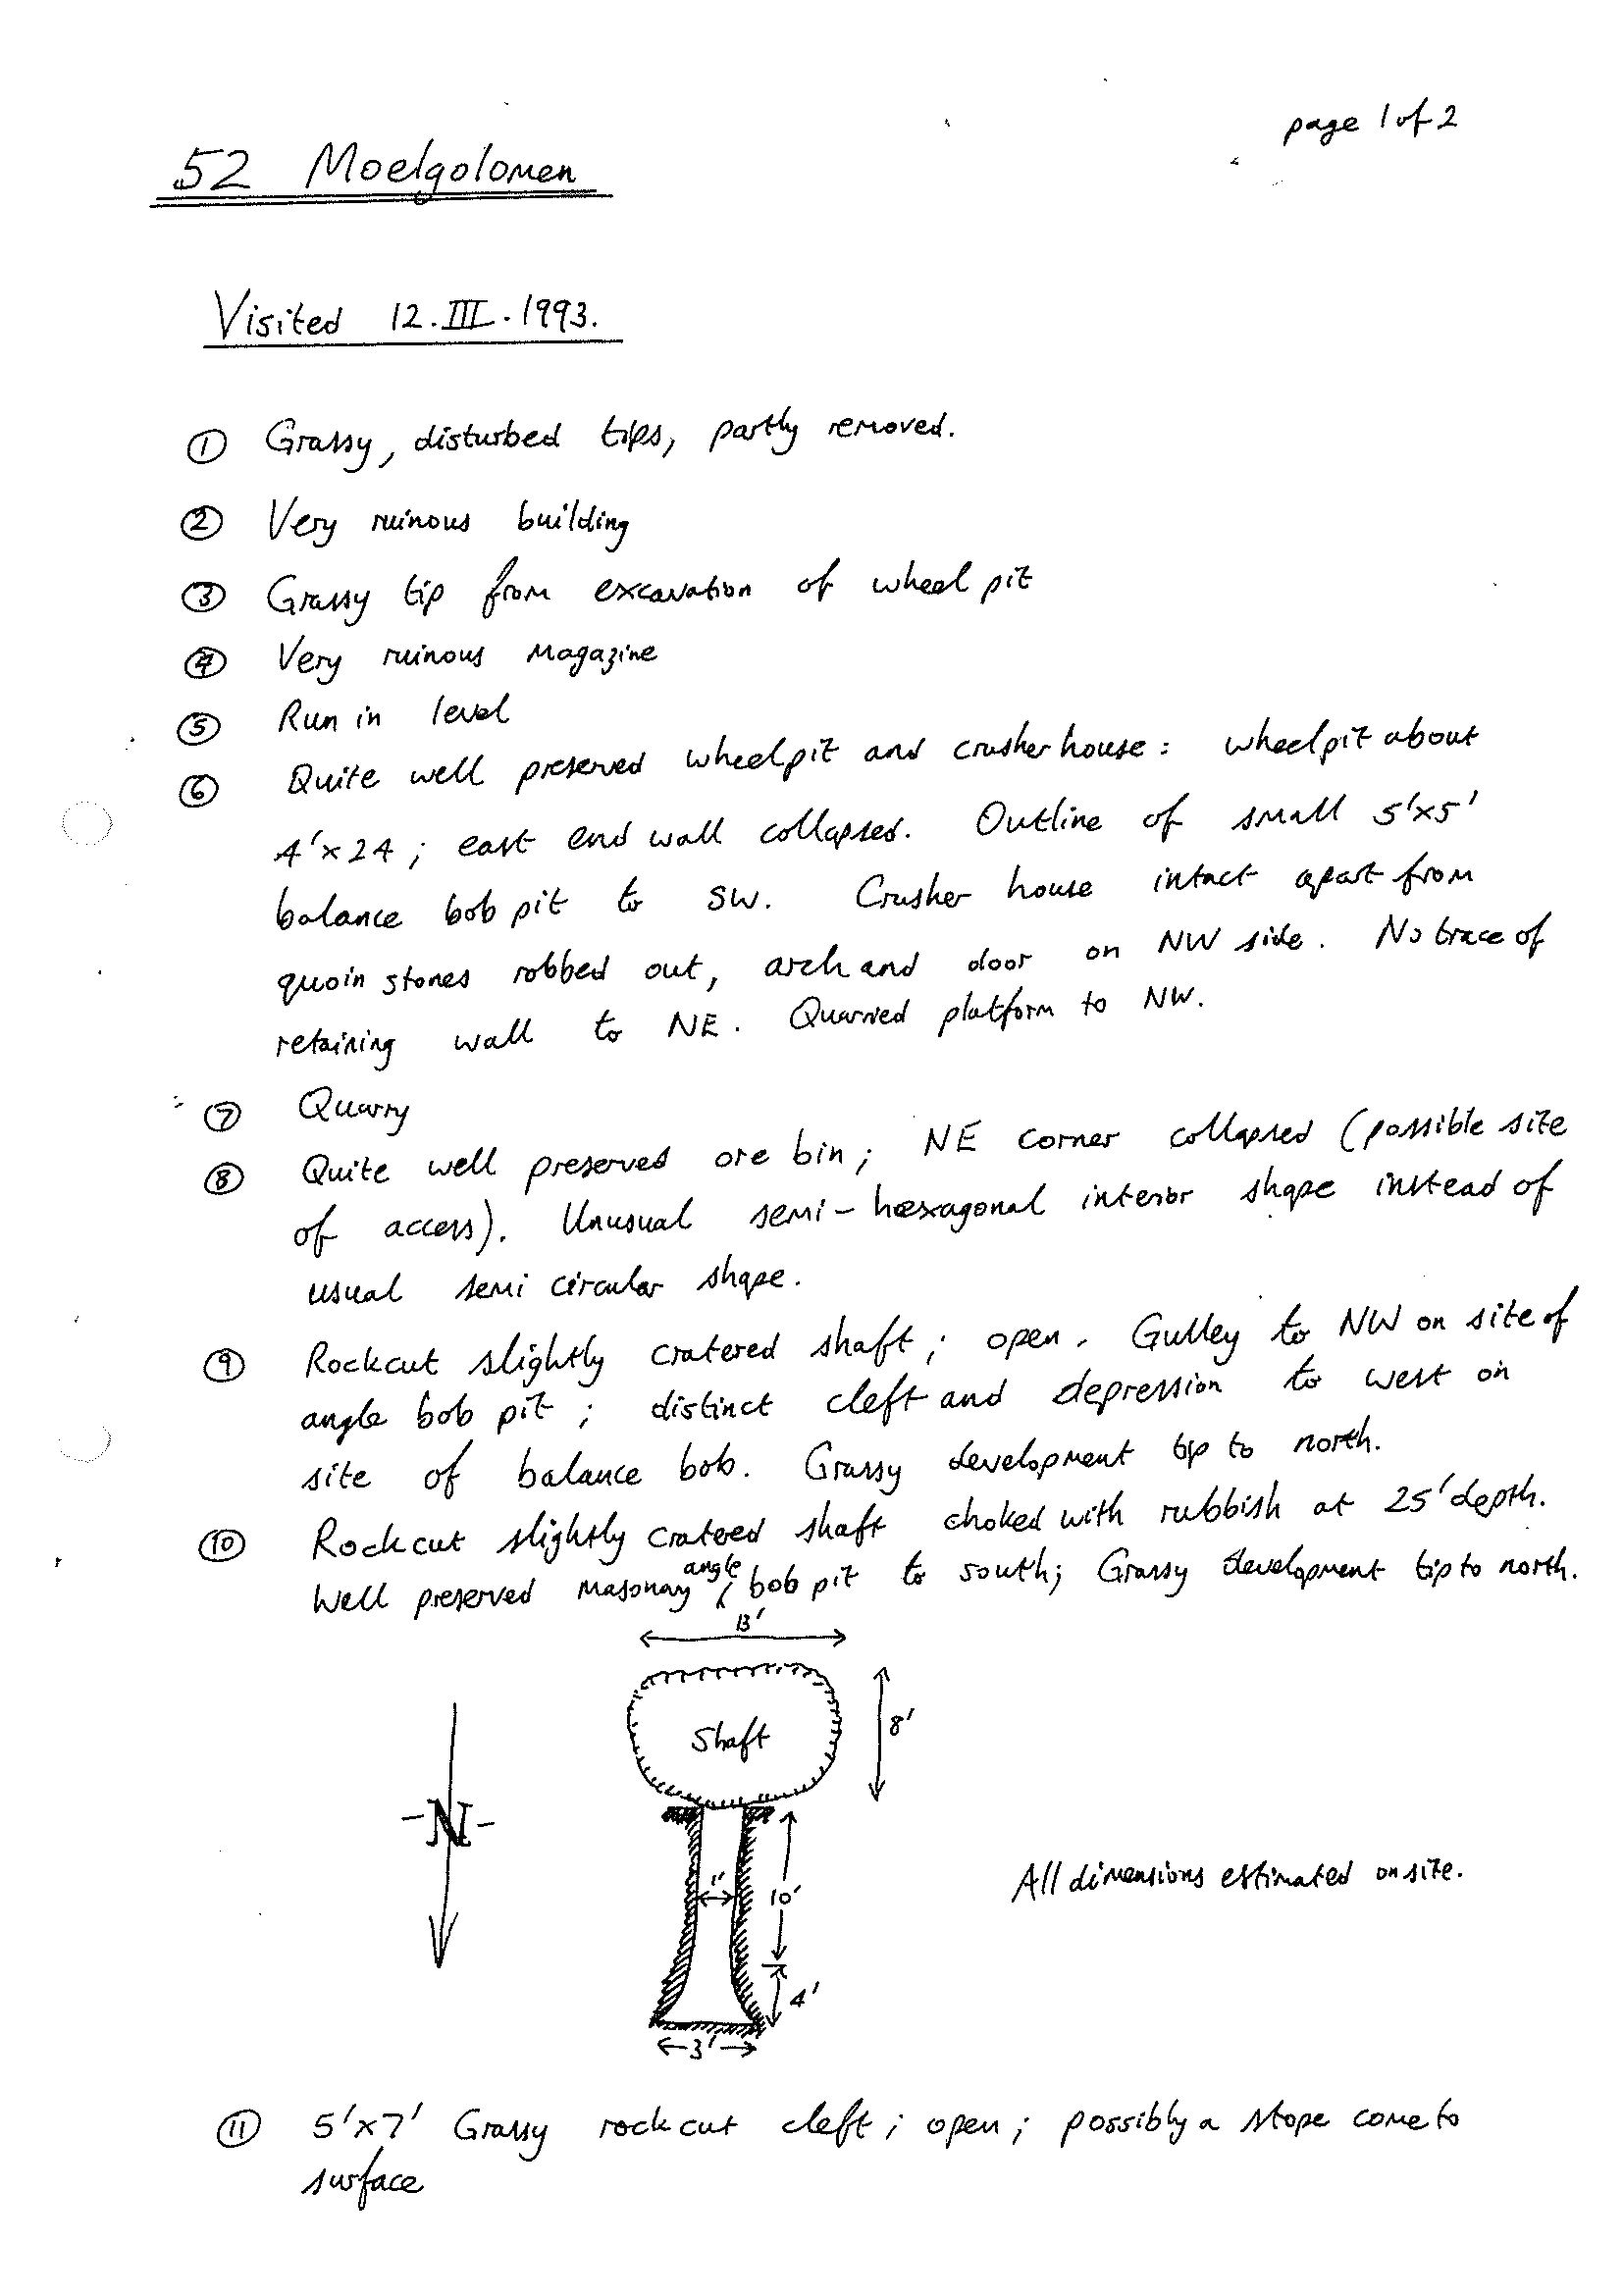 page 1 of 2
52 Moelgolomen
Visited 12.III.1993.
① Grassy, disturbed tips, partly removed.
② Very ruinous building
③ Grassy tip from excavation of wheel pit
④ Very ruinous magazine
⑤ Run in level
⑥ Quite well preserved wheelpit and crusher house: wheelpit about
4'x24; east end wall collapsed. Outline of small 5'x5'
balance bob pit to SW. Crusher house intact apart from
quoin stones robbed out, arch and door on NW side. No trace of
retaining wall to NE. Quarried platform to NW.
⑦ Quarry
⑧ Quite well preserved ore bin; NE corner collapsed (possible site
of access). Unusual semi-hexagonal interior shape instead of
usual semi circular shape.
⑨ Rockcut slightly cratered shaft; open. Gulley to NW on site of
angle bob pit; distinct cleft and depression to west on
site of balance bob. Grassy development tip to north.
⑩ Rockcut slightly cratered shaft choked with rubbish at 25' depth.
Well preserved masonry angle bob pit to south; Grassy development tip to north.
13'
Shaft
8'
-N-
1'
10'
All dimensions estimated on site.
4'
3'
⑪ 5'x7' Grassy rock cut cleft; open; possibly a stope come to
surface